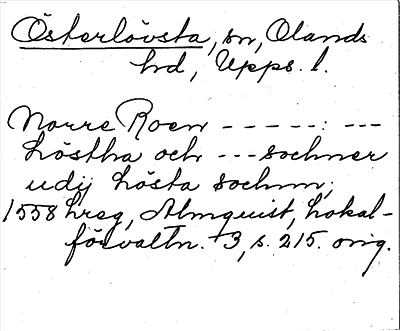 Österlövsta, sn, Olands
hd, Upps. l.
Norre Roen - - - - -: - - -
Löstha och - - - sochner
udij Lösta sochnn;
1558 hreg, Almquist, Lokal-
förvaltn. 3, s. 215. orig.